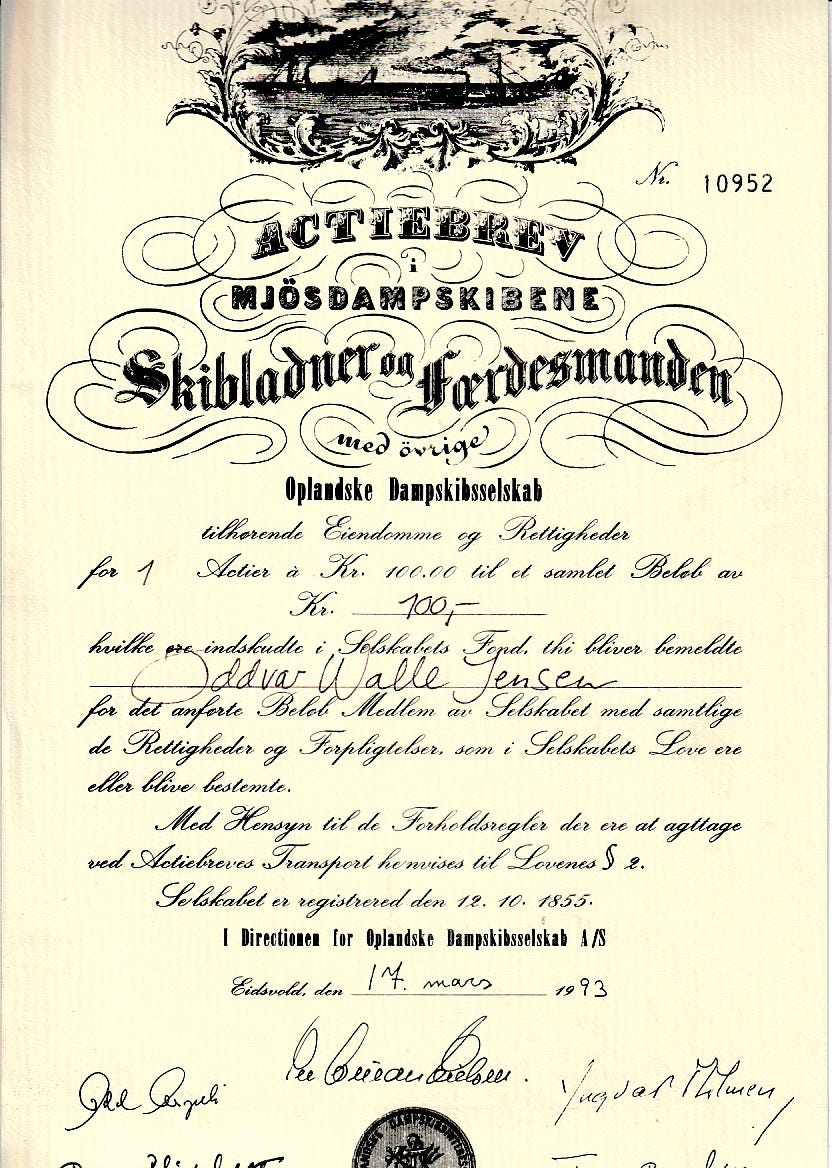 Nr. 10952
ACTIEBREV
i
MJÖSDAMPSKIBENE
Skibladner og Færdesmanden
med övrige
Oplandske Dampskibsselskab
tilhørende Eiendomme og Rettigheder
for 1 Actier à Kr. 100.00 til et samlet Beløb av
Kr. 100,-
hvilke ere indskudte i Selskabets Fond, thi bliver bemeldte
Oddvar Walle Jensen
for det anførte Beløb Medlem av Selskabet med samtlige
de Rettigheder og Forpligtelser, som i Selskabets Love ere
eller blive bestemte.
Med Hensyn til de Forholdsregler der ere at agttage
ved Actiebreves Transport henvises til Lovenes § 2.
Selskabet er registrered den 12. 10. 1855.
I Directionen for Oplandske Dampskibsselskab A/S
Eidsvold, den 17. mars 1993